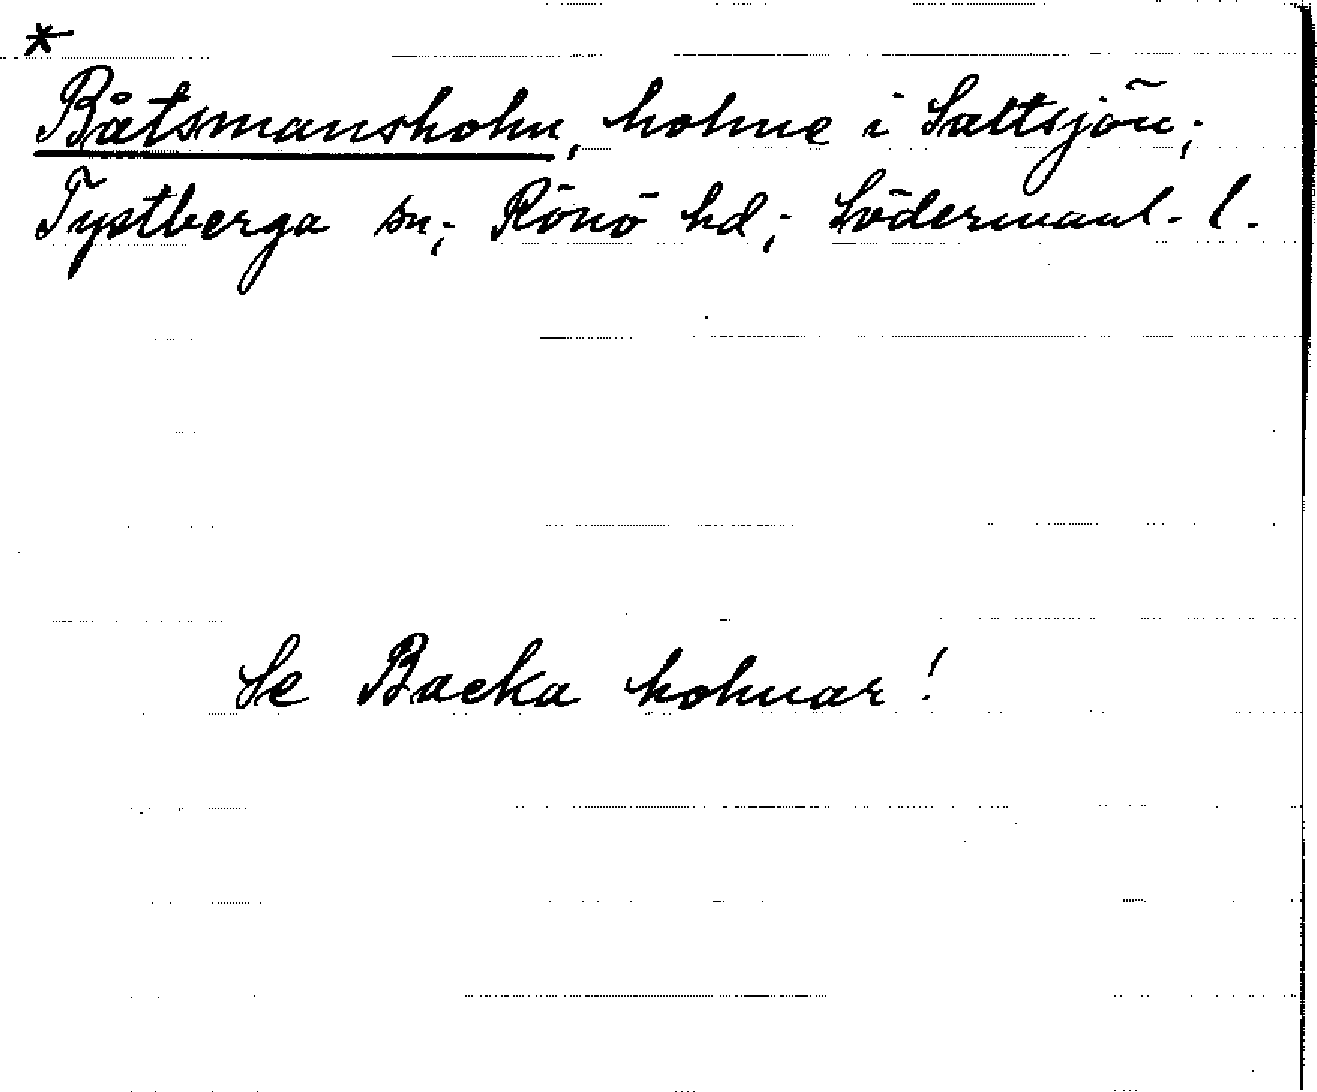 *
Båtsmansholm, holme i Saltsjön;
Tystberga sn; Rönö hd; Södermanl. l.
Se Backa holmar!